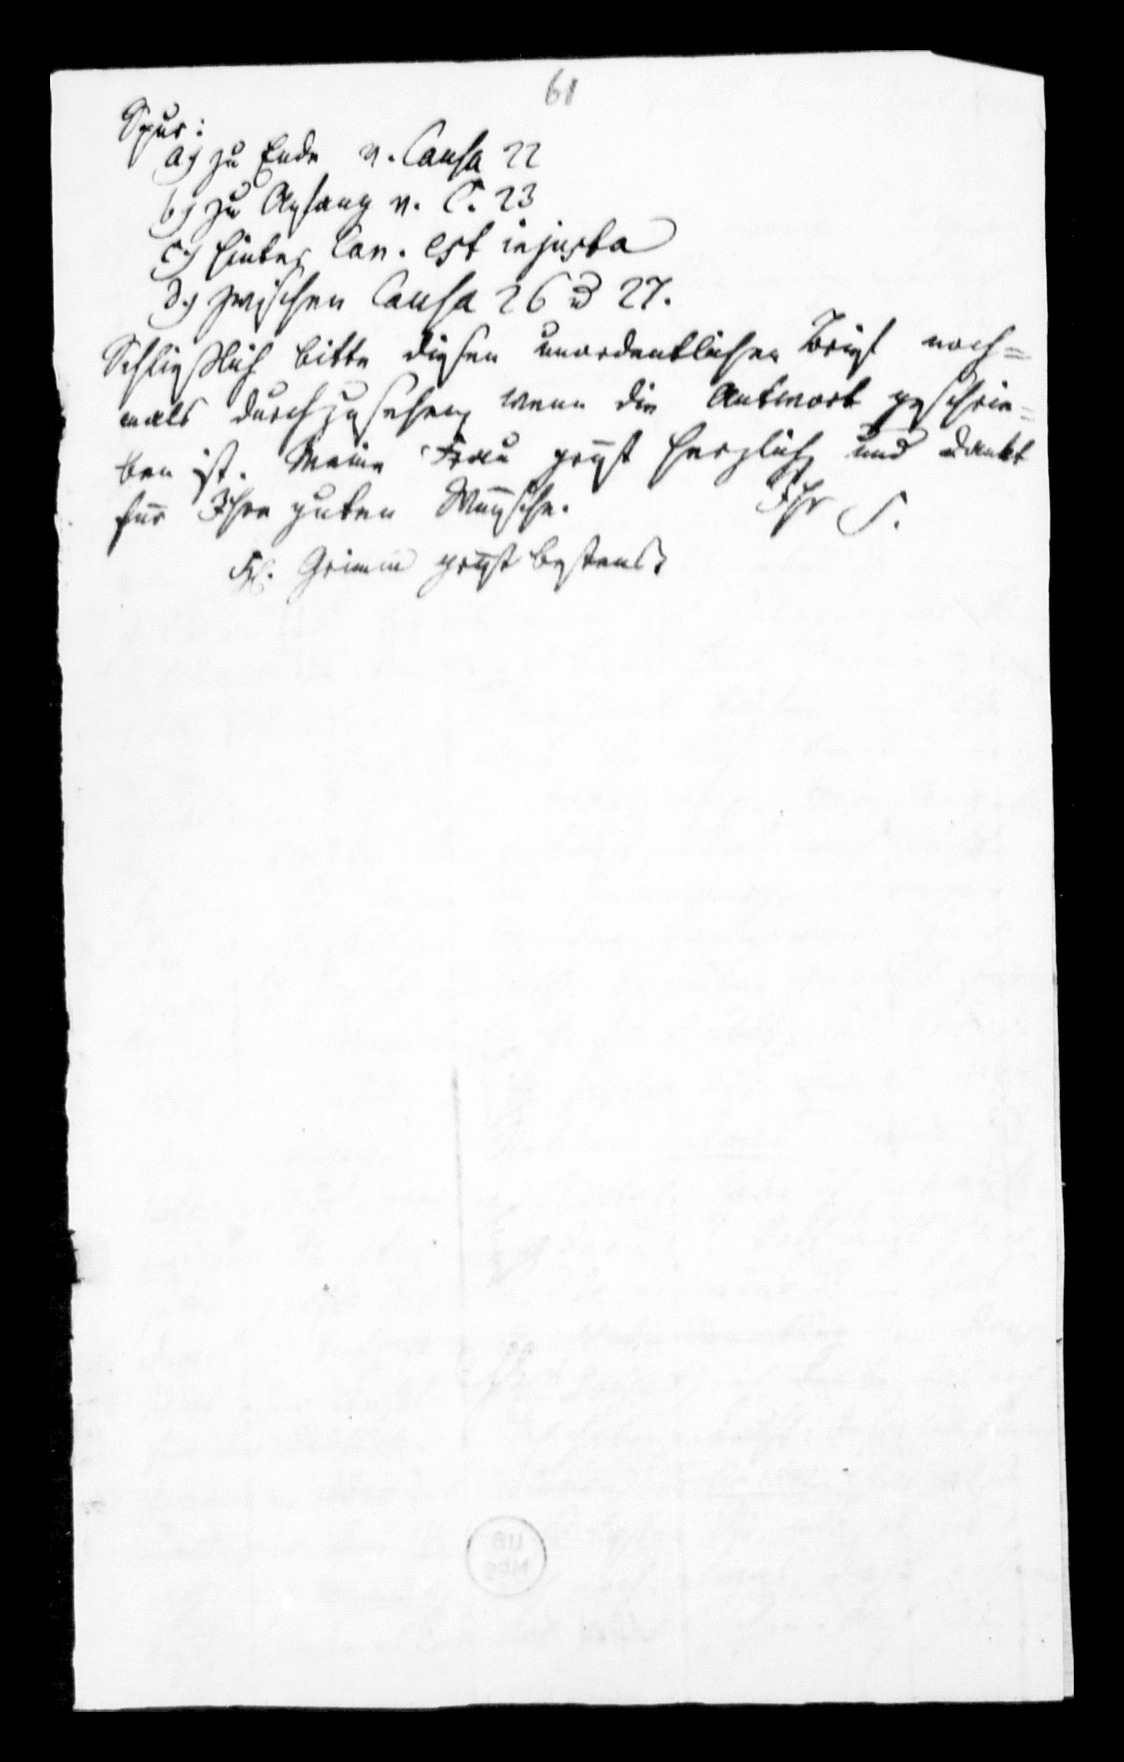 61
Spur:
a) zu Ende v. Causa 22
b) zu Anfang v. C. 23
c) hinter Can. est injusta
d) zwischen Causa 26 u 27.
Schließlich bitte diesen unordentlichen Brief noch=
mals durchzusehen, wenn die Antwort geschrie=
ben ist. Meine Frau grüßt herzlich und dankt
für Ihre guten Wünsche. Ihr S.
Grimm grüßt bestens
UB